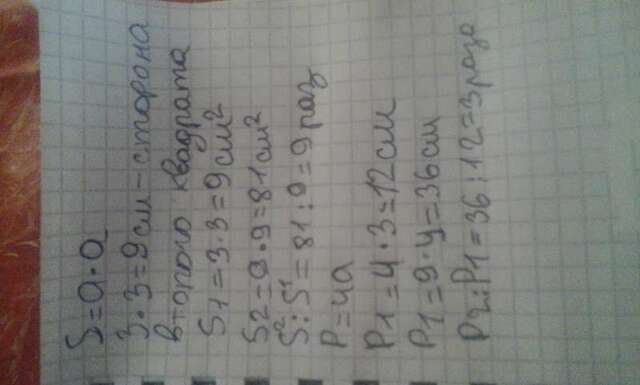 S=a·a
3·3=9см-сторона
второго квадрата
S1=3·3=9см²
S2=9·9=81см²
S²:S¹=81:9=9раз
P=4a
P1=4·3=12см
P1=9·4=36см
P2:P1=36:12=3раза